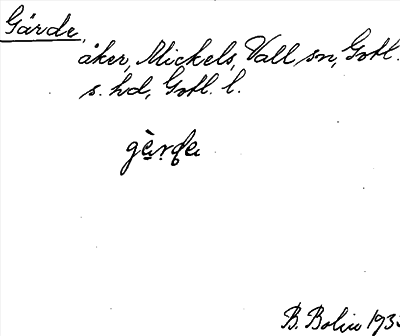 Gärde,
åker, Mickels, Vall sn, Gotl.
s. hd, Gotl. l.
gèrde
B. Bolin